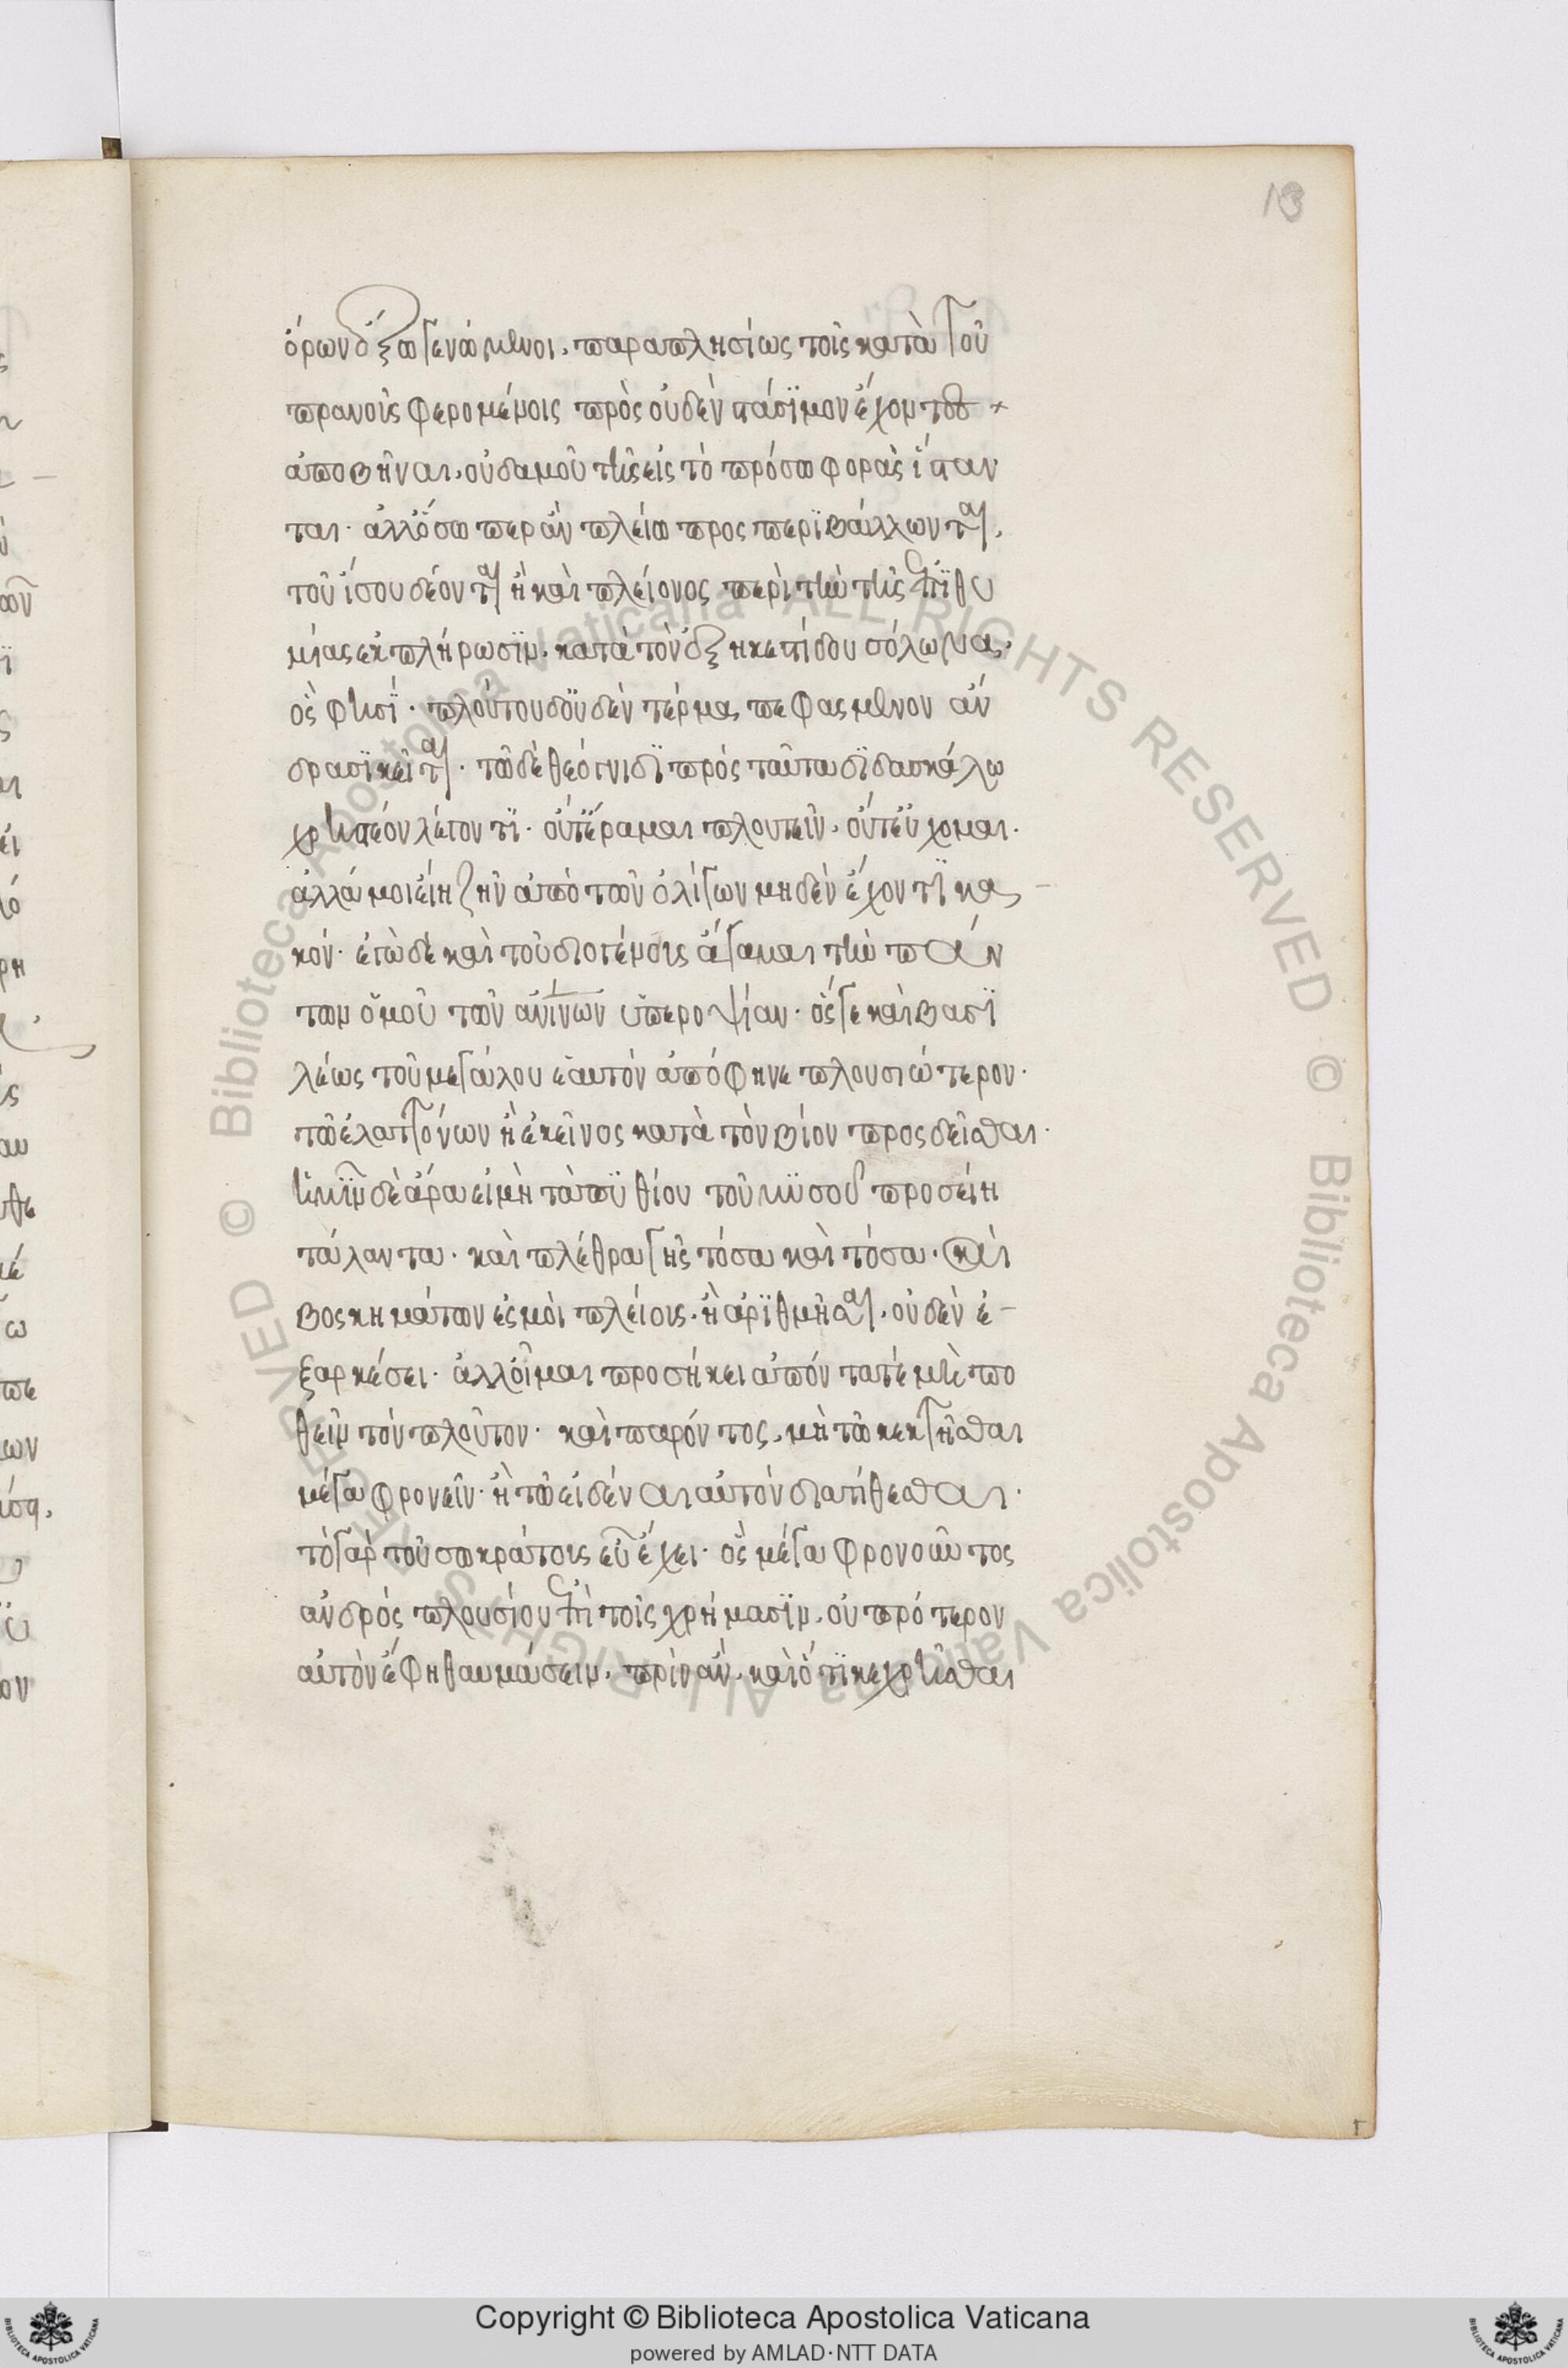 13
ὅρων ἔξω γενόμενοι, παραπλησίως τοῖς κατὰ τοῦ
πρανοῦς φερομένοις πρὸς οὐδὲν στάσιμον ἔχουσιν
ἀποβῆναι, οὐδαμοῦ τῆς εἰς τὸ πρόσω φορᾶς ἵσταν
ται· ἀλλ' ὅσῳ περ ἂν πλείω προσπεριβάλλωνται,
τοῦ ἴσου δέονται ἢ καὶ πλείονος περὶ τὴν τῆς ἐπιθυ
μίας ἐκπλήρωσιν. κατὰ τὸν ἐξηκεστίδου σόλωνα,
ὅς φησι· πλούτου δ' οὐδὲν τέρμα πεφασμένον ἀν
δράσι κεῖται. τῷ δὲ θεόγνιδι πρὸς ταῦτα διδασκάλῳ
χρηστέον λέγοντι· οὔτ' ἔραμαι πλουτεῖν, οὔτ' εὔχομαι.
ἀλλά μοι εἴη ζῆν ἀπὸ τῶν ὀλίγων μηδὲν ἔχοντι κα
κόν. ἐγὼ δὲ καὶ τοῦ διογένους ἄγαμαι τὴν πάν
των ὁμοῦ τῶν ἀνίνων ὑπεροψίαν. ὅς γε καὶ βασι
λέως τοῦ μεγάλου ἑαυτὸν ἀπόφηνε πλουσιώτερον.
τῷ ἐλαττόνων ἢ ἐκεῖνος κατὰ τὸν βίον προσδεῖσθαι.
ἡμῖν δὲ ἄρα εἰ μὴ τὰ πυθίου τοῦ μυσοῦ προσείη
τάλαντα. καὶ πλέθρα γῆς τόσα καὶ τόσα. καὶ
βοσκημάτων ἐσμοὶ πλείους, ἢ ἀριθμῆσαι, οὐδὲν ἐ
ξαρκέσει. ἀλλ' οἶμαι προσήκει ἀπόντα τε μὴ πο
θεῖν τὸν πλοῦτον. καὶ παρόντος, μὴ τῷ κεκτῆσθαι
μέγα φρονεῖν. ἢ τῷ εἰδέναι αὐτὸν διατίθεσθαι.
τὸ γὰρ τοῦ σωκράτους εὖ ἔχει. ὃς μέγα φρονοῦντος
ἀνδρὸς πλουσίου ἐπὶ τοῖς χρήμασιν, οὐ πρότερον
αὐτὸν ἔφη θαυμάσειν, πρὶν ἂν, καὶ ὅτι κεχρῆσθαι
Copyright © Biblioteca Apostolica Vaticana
powered by AMLAD·NTT DATA